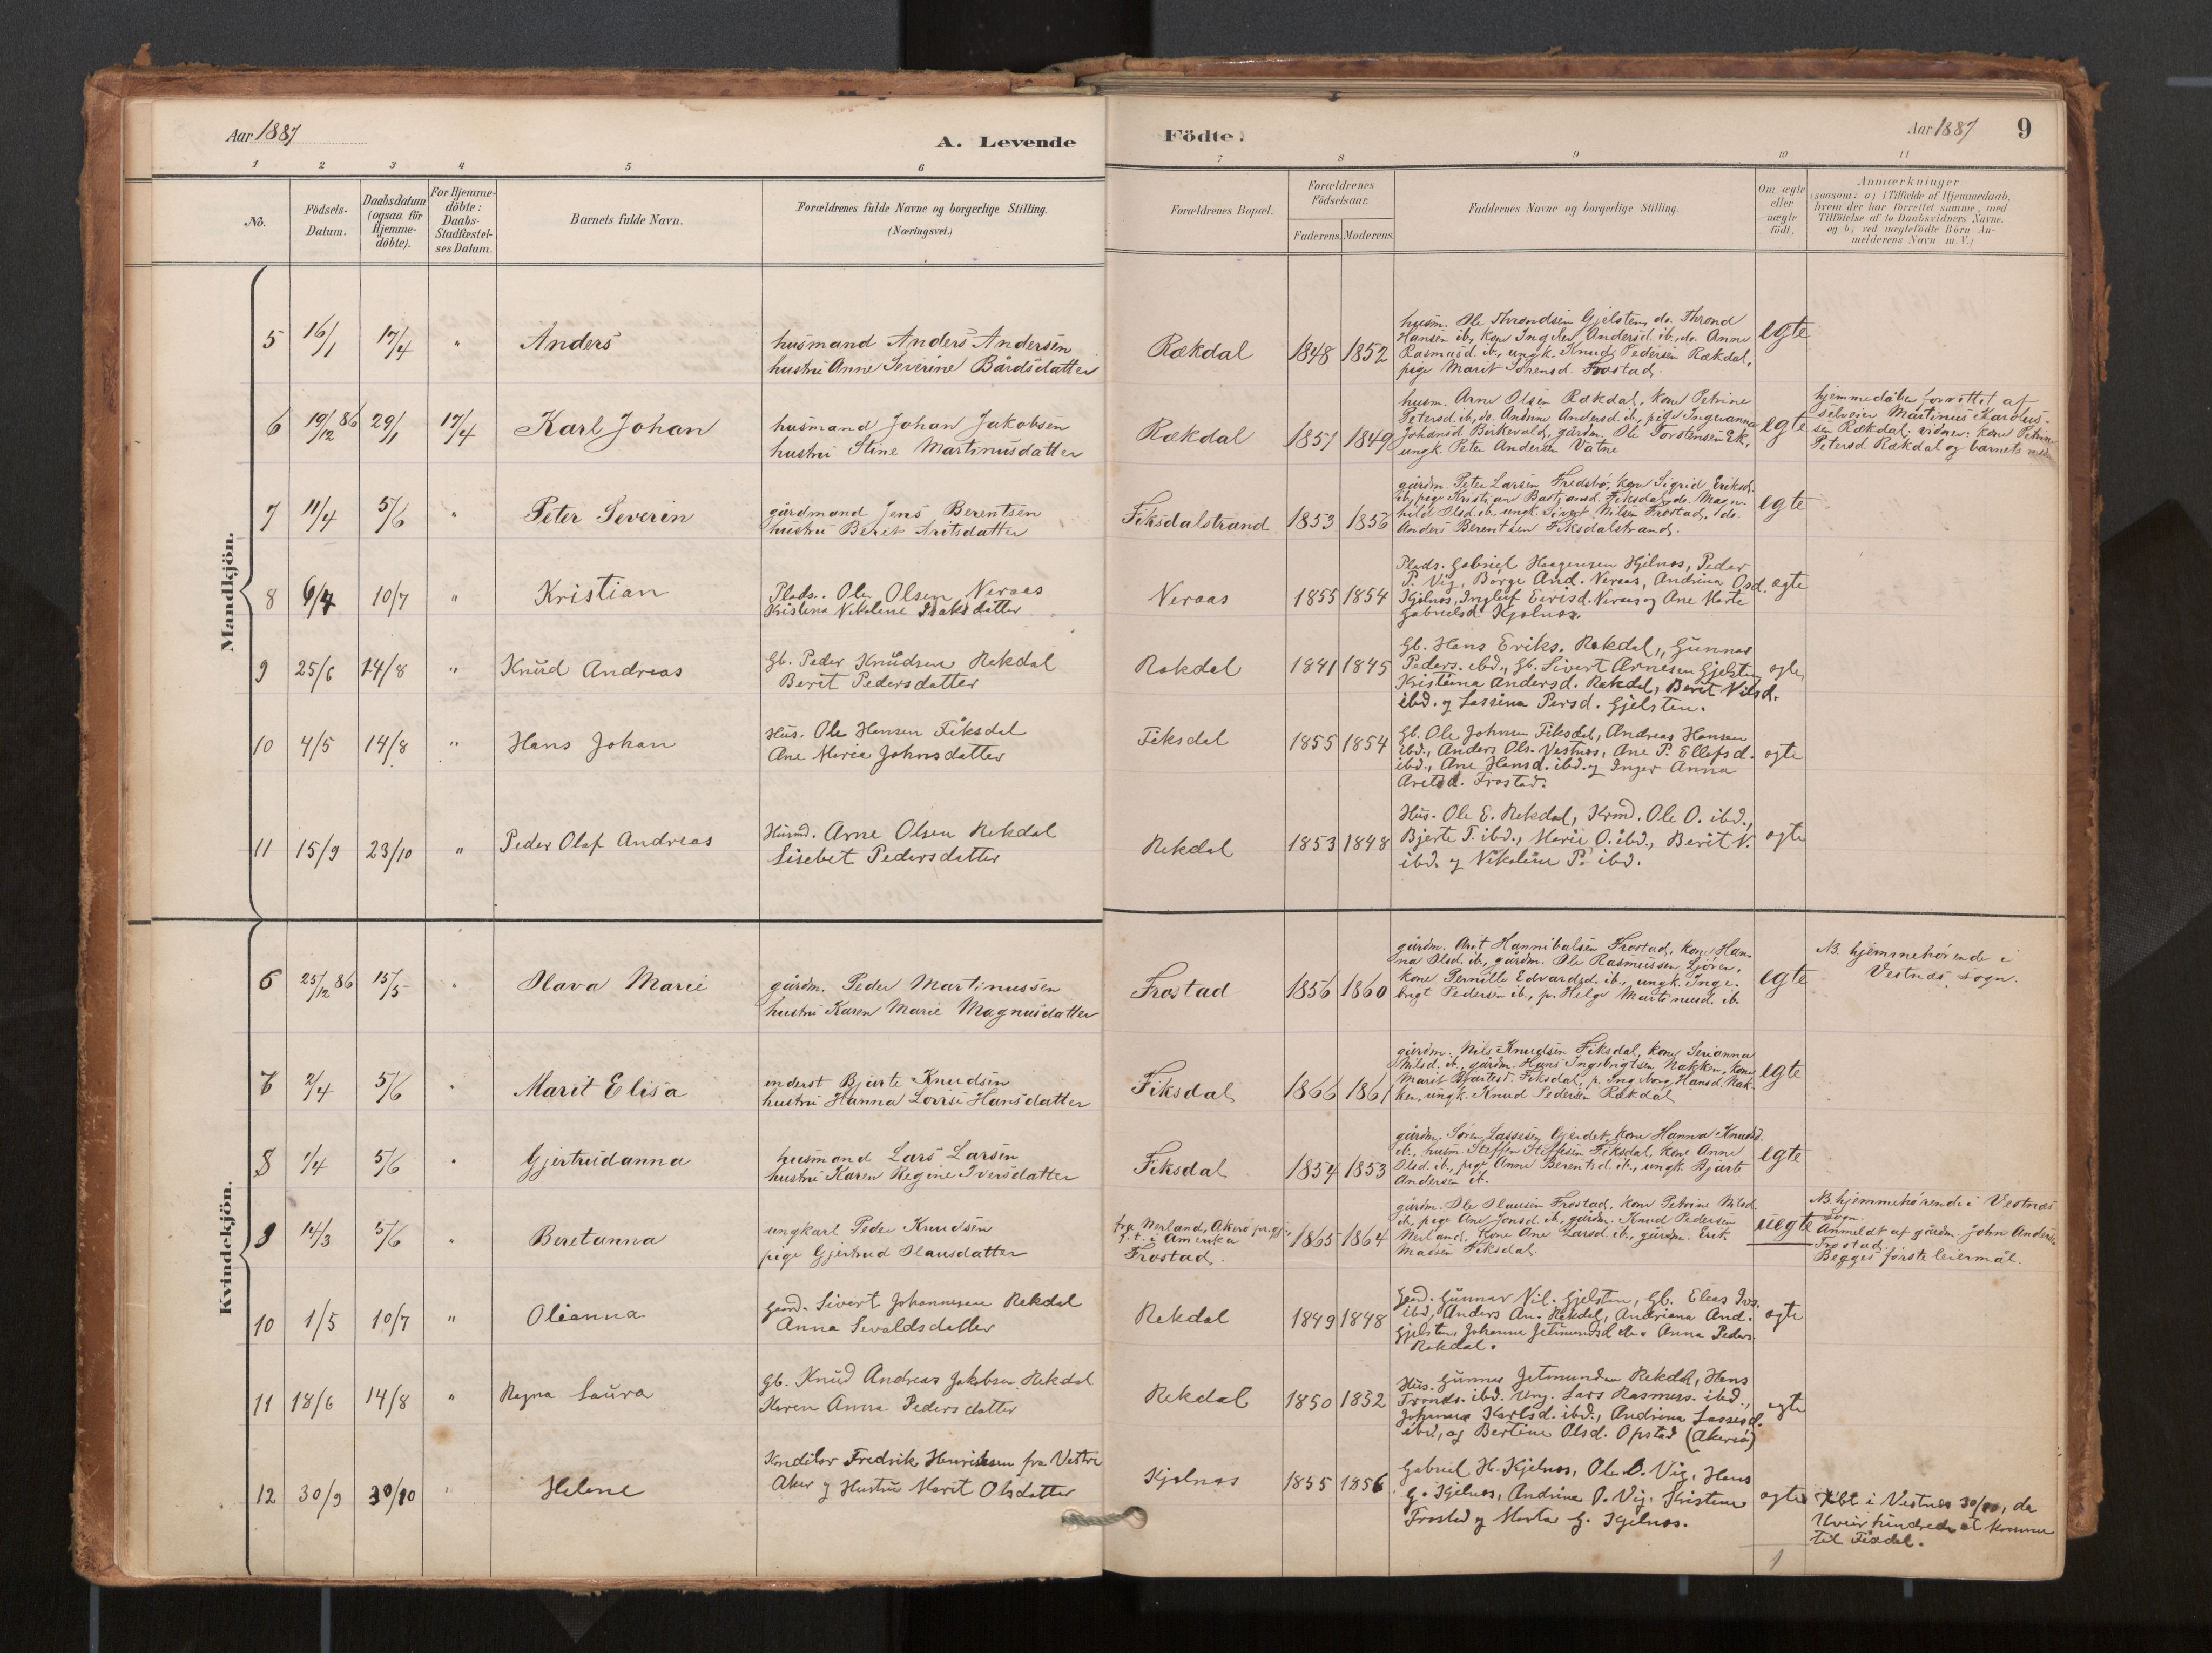 Aar 1887
A. Levende
1 2 3 4 5 6
No.
Födsels-
Datum.
Daabsdatum
(ogsaa for
Hjemme-
döbte).
For Hjemme-
döbte:
Daabs-
Stadfæstel-
ses Datum.
Barnets fulde Navn.
Forældrenes fulde Navne og borgerlige Stilling.
(Næringsvei.)
Mandkjön.
5 16/1 17/4 " Anders
husmand Anders Andersen
hustru Anne Severine Bårdsdatter
6 19/12 86 29/1 17/4 Karl Johan
husmand Johan Jakobsen
hustru Stine Martinusdatter
7 11/4 5/6 " Peter Severin
gårdmand Jens Berentsen
hustru Berit Aritsdatter
8 6/4 10/7 " Kristian
Plads. Ole Olsen Neraas
Kristina Nikoline Isaksdatter
9 25/6 14/8 " Knud Andreas
Gb. Peder Knudsen Rekdal
Berit Pedersdatter
10 4/5 14/8 " Hans Johan
Hus. Ole Hansen Fiksdal
Ane Maria Johnsdatter
11 15/9 23/10 " Peder Olaf Andreas
Husmd. Arne Olsen Rekdal
Lisebet Pedersdatter
Kvindekjön.
6 25/12 86 15/5 " Olava Marie
gårdm. Peder Martinussen
hustru Karen Marie Magnusdatter
7 2/4 5/6 " Marit Elisa
inderst Bjarte Knudsen
hustru Hanna Lovise Hansdatter
8 1/4 5/6 " Gjertrudanna
husmand Lars Larsen
hustru Karen Regine Iversdatter
9 14/3 5/6 Beretanna
ungkarl Peder Knudsen
pige Gjertrud Olausdatter
10 1/5 10/7 " Olianna
Gaard. Sivert Johannesen Rekdal
Anna Sevaldsdatter
11 18/6 14/8 " Ragna Laura
Gb. Knud Andreas Jakobsen Rekdal
Karen Anna Pedersdatter
12 30/9 30/10 " Helene
Konditor Fredrik Henriksen fra Vestre
Aker og Hustru Marit Olsdatter
Födte.
Aar 1887 9
7 8 9 10 11
Forældrenes Bopæl.
Forældrenes
Födselsaar.
Faderens. Moderens.
Faddernes Navne og borgerlige Stilling.
Om ægte
eller
uægte
födt.
Anmærkninger
(saasom: a) i Tilfælde af Hjemmedaab,
hvem der har forrettet samme, med
Tilföielse af to Daabsvidners Navne,
og b) ved uægtefödte Börn An-
melderens Navn m.V.)
Rækdal 1848 1852
husm. Ole Throndsen Gjelsten, do. Thrond
Hansen ib., kone Ingelev Andersd. ib., do. Anne
Rasmusd. ib., ungk. Knud Pedersen Rækdal,
pige Marit Sørensd. Frostad.
egte
Rækdal 1857 1849
husm. Arne Olsen Rækdal, kone Petrine
Petersd. ib., do. Andrine Andersd. ib., pige Ingeranna
Johansd. Birkevold, gårdm. Ole Torstensen Ek,
ungk. Peter Andersen Vatne
egte
hjemmedåben forrettet af
selveier Martinus Karolus-
sen Rækdal. vidner: kone Petrine
Petersd. Rækdal og barnets
Fiksdalstrand 1853 1856
gårdm. Peter Larsen Fredsbø, kone Sigrid Eriksd.
ib., pige Kristiane Bastjansd. Fiksdal, do. Magn-
hild Olsd. ib., ungk. Sivert Nilsen Frostad, do.
Anders Berentsen Fiksdalstrand.
egte
Neraas 1855 1854
Plads. Gabriel Haagensen Hjelnes, Peder
P. Vig, Börge And. Neraas, Andrina Osd.
Kjelnes, Ingleif Eirisd. Neraas og Ane Marte
Gabrielsd. Kjelnes.
ægte
Rekdal 1841 1845
Gb. Hans Eriks. Rekdal, Gunnar
Peders. ibd., Gb. Sivert Arnesen Gjelsten,
Kristiana Andersd. Rekdal, Berit Nilsd.
ibd. og Lassina Persd. Gjelsten.
ægte
Fiksdal 1855 1854
Gb. Ole Johnsen Fiksdal, Andreas Hansen
ibd., Anders Ols. Vestnes, Ane P. Ellefsd.
ibd., Ane Hansd. ibd. og Inger Anna
Aretsd. Frostad.
ægte
Rekdal 1853 1848
Hus. Ole E. Rekdal, Krmd. Ole O. ibd.,
Bjerte T. ibd., Marie O. ibd., Berit N.
ibd. og Nikoline P. ibd.
ægte
Frostad 1856 1860
gårdm. Arit Hannibalsen Frostad, kone Han-
na Olsd. ib., gårdm. Ole Rasmussen Gjøren,
kone Pernille Edvardsd. ib., ungk. Inge-
brigt Pedersen ib., p. Helge Martinusd. ib.
egte
NB. hjemmehørende i
Vestnæs sogn.
Fiksdal 1866 1861
gårdm. Nils Knudsen Fiksdal, kone Serianna
Nilsd. ib., gårdm. Hans Ingebrigtsen Nakken, kone
Marit Bjartesd. Fiksdal, p. Ingeborg Hansd. Nak-
ken, ungk. Knud Pedersen Rækdal
egte
Fiksdal 1854 1853
gårdm. Søren Lassesen Gjerdet, kone Hanna Knudsd.
ib., husm. Steffen Steffesen Fiksdal, kone Anne
Olsd. ib., pige Anne Berentsd. ib., ungk. Bjarte
Andersen ib.
egte
fra Nerland, Akerø prgj.
p.t. i Amerika
Frostad. 1865 1864
gårdm. Ole Olausen Frostad, kone Petrine Nilsd.
ib., pige Ane Jonsd. ib., gårdm. Knud Pedersen
Nerland, kone Ane Larsd. ib., gårdm. Erik
Massen Fiksdal.
uegte
NB. hjemmehørende i Vestnæs
sogn.
Anmeldt af gårdm. John Andersen
Frostad.
Begges første leiermål.
Rekdal 1849 1848
Gaad. Gunnar Nil. Gjelsten, Gb. Elias Ivs.
ibd, Anders An. Rekdal, Andriana And.
Gjelsten, Johanne Jetmundsd. do. Anna Peders.
Rekdal.
ægte
Rekdal 1850 1852
Hus. Gunnar Jetmundsen Rekdal, Hans
Tronds. ibd. Ung. Lars Rasmuss. ibd.,
Johanna Karlsd. ibd., Andrina Lassesd.
ibd., og Bertine Olsd. Opstad (Akerø)
ægte
Kjelnes 1855 1856
Gabriel H. Kjelnes, Ole D. Vig, Hans
G. Kjelnes, Andrine O. Vig, Kristine
Frostad og Marta G. Kjelnes.
ægte
Döbt i Vestnes 30/10, da
Uveir hindrede at komme
til Fixdal.
1